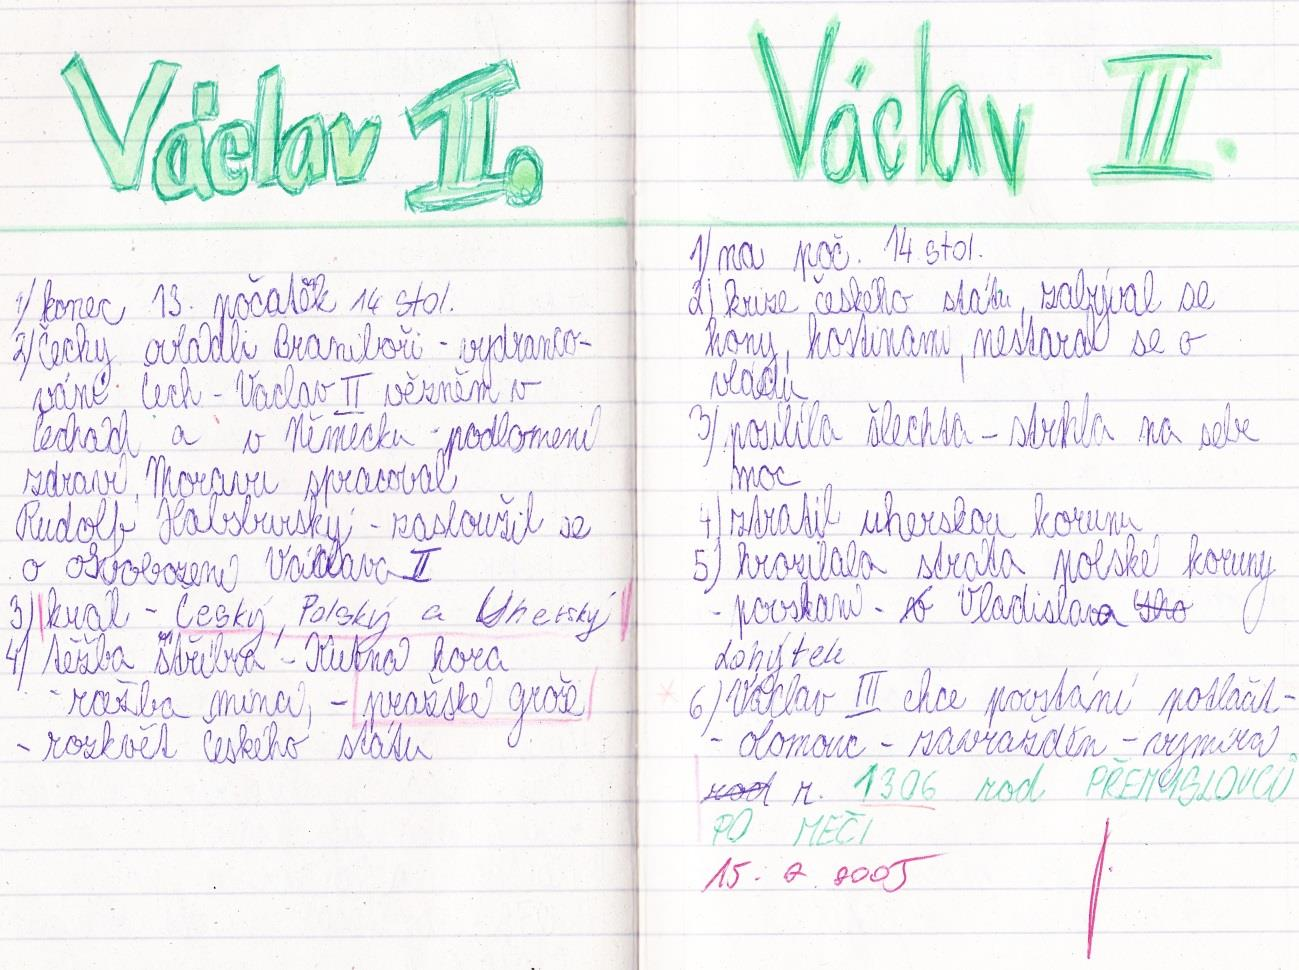 Václav II.
1) konec 13. počatěk 14 stol.
2) Čechy ovládli Braniboři - vydranco-
váné Čech - Václav II vězněm v
Čechách a v Německu - podlomení
zdraví, Moravu spracoval
Rudolf Habsburský - zasloužil se
o osvobození Václava II
3) král - Český, Polský a Uherský
4) těžba stříbra - Kutná hora
- ražba mincí, - pražské groše
- rozkvět českého státu
Václav III.
1) na poč. 14 stol.
2) krize českého státu, zabýval se
hony, hostinami, nestaral se o
vládu
3) posílila šlechta - strhla na sebe
moc
4) ztratil uherskou korunu
5) hrozilala strata polské koruny
- povstání - Vladislava
Lokýtek
6) Václav III chce povstání potlačit -
- olomouc - zavražděn - vymírá
rod r. 1306 rod PŘEMYSLOVCŮ
PO MEČI
15. 2. 2005